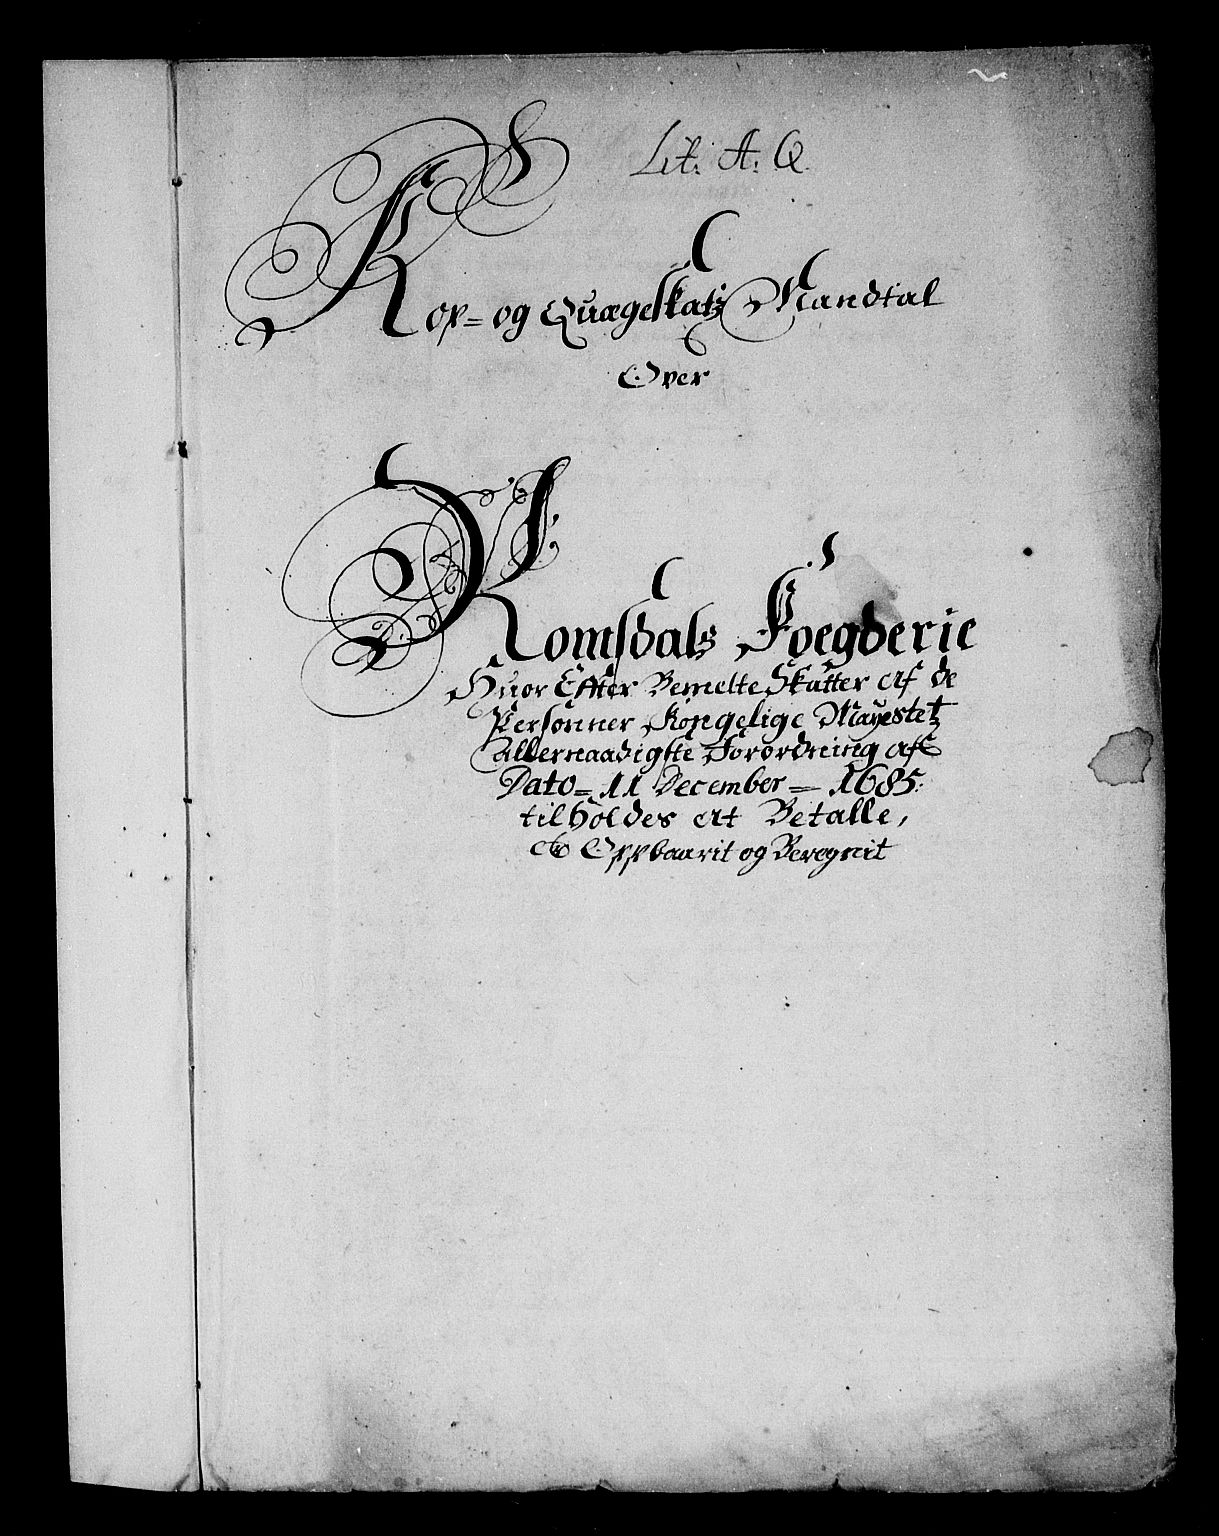 Lit: A: Q.
Kop- og Quægeskatz Mandtal
Over
Romsdals Foegderie
Huor Effter Bemelte Skatter af de
Personner Kongelige Mayestetz
Allernaadigste Forordning af
Dato = 11 December = 1685:
tilholdes at Betalle,
Er Oppbaarit og Beregnit